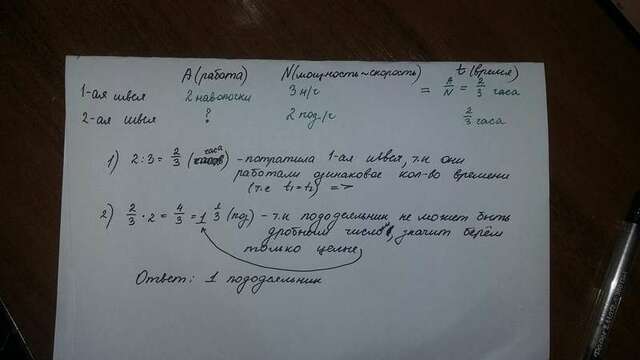 A (работа) N (мощность ~ скорость) t (время)
1-ая швея 2 наволочки 3 н/ч = A/N = 2/3 часа
2-ая швея ? 2 под./ч 2/3 часа
1) 2:3 = 2/3 (часа) - потратила 1-ая швея, т.к они
работали одинаковое кол-во времени
(т.е t1=t2) =>
2) 2/3 · 2 = 4/3 = 1 1/3 (под) - т.к пододеяльник не может быть
дробным числом, значит берём
только целые
Ответ: 1 пододеяльник